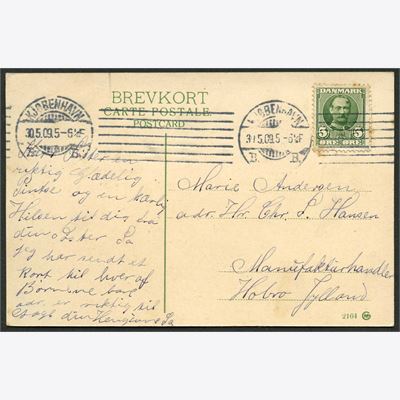 BREVKORT
CARTE POSTALE
POSTCARD
KJØBENHAVN
30.5.09.5-6½F
B.
KJØBENHAVN
30.5.09.5-6½F
B. B.
DANMARK
5 5
ØRE ØRE
Kære Søster en
rigtig Glædelig
Pintse og en kærlig
Hilsen til dig fra
din Søster
jeg har sendt et
Kort til hver af
Børnene
adr. er rigtig til
din Hengivne
Marie Andersen
adr. Hr. Chr. S. Hansen
Manufakturhandler
Hobro Jylland
2164